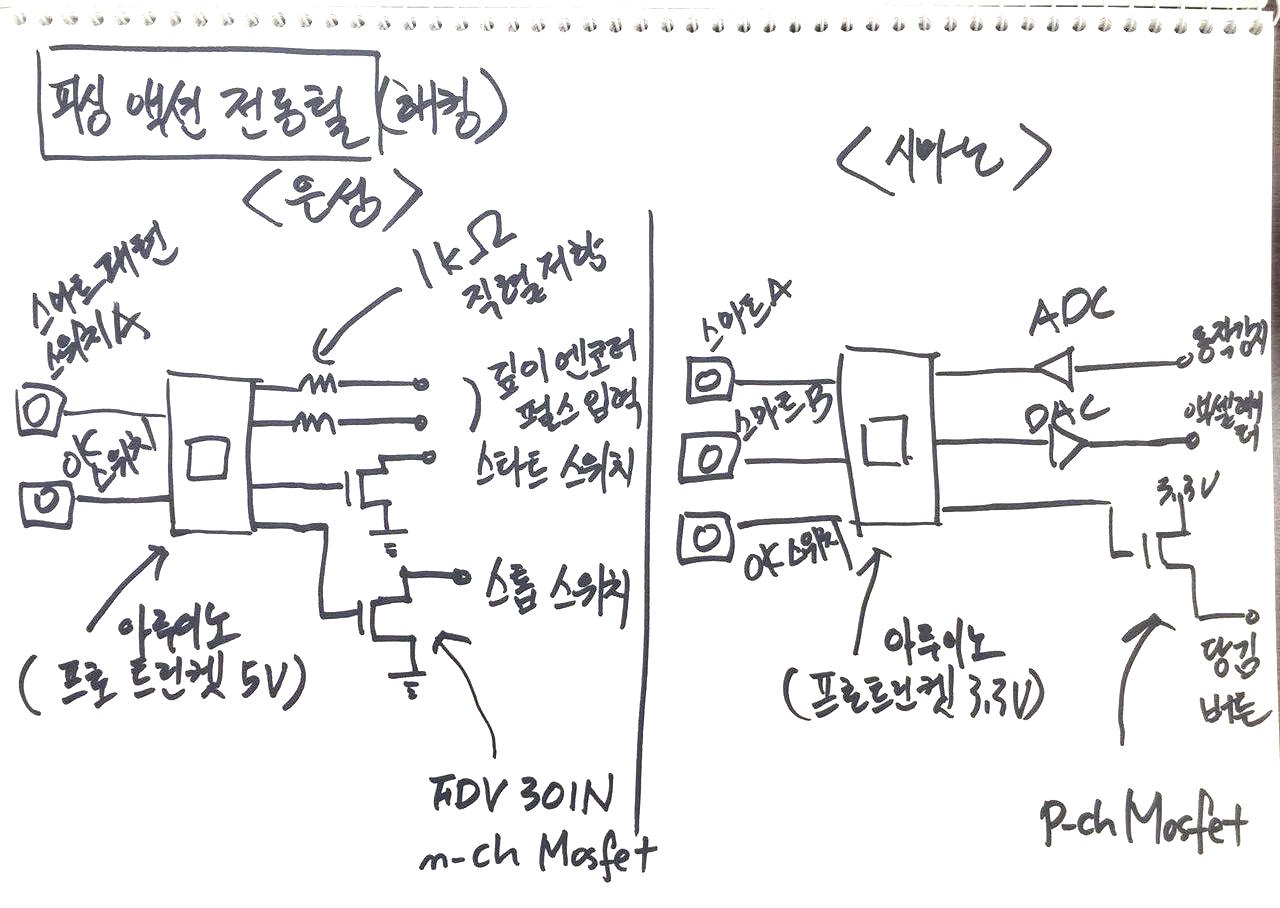 피싱 액션 전동릴 (해킹)
<은성>
스마트패턴
스위치A
OK
스위치
1kΩ
직렬저항
깊이엔코더
펄스입력
스타트 스위치
스톱 스위치
아루이노
(프로 트린켓 5V)
FDV 301N
n-ch Mosfet
<시마노>
스마트A
스마트B
OK스위치
ADC
동작감지
DAC
액셀레
터
3.3V
당김
버튼
아루이노
(프로트린켓 3.3V)
P-ch Mosfet